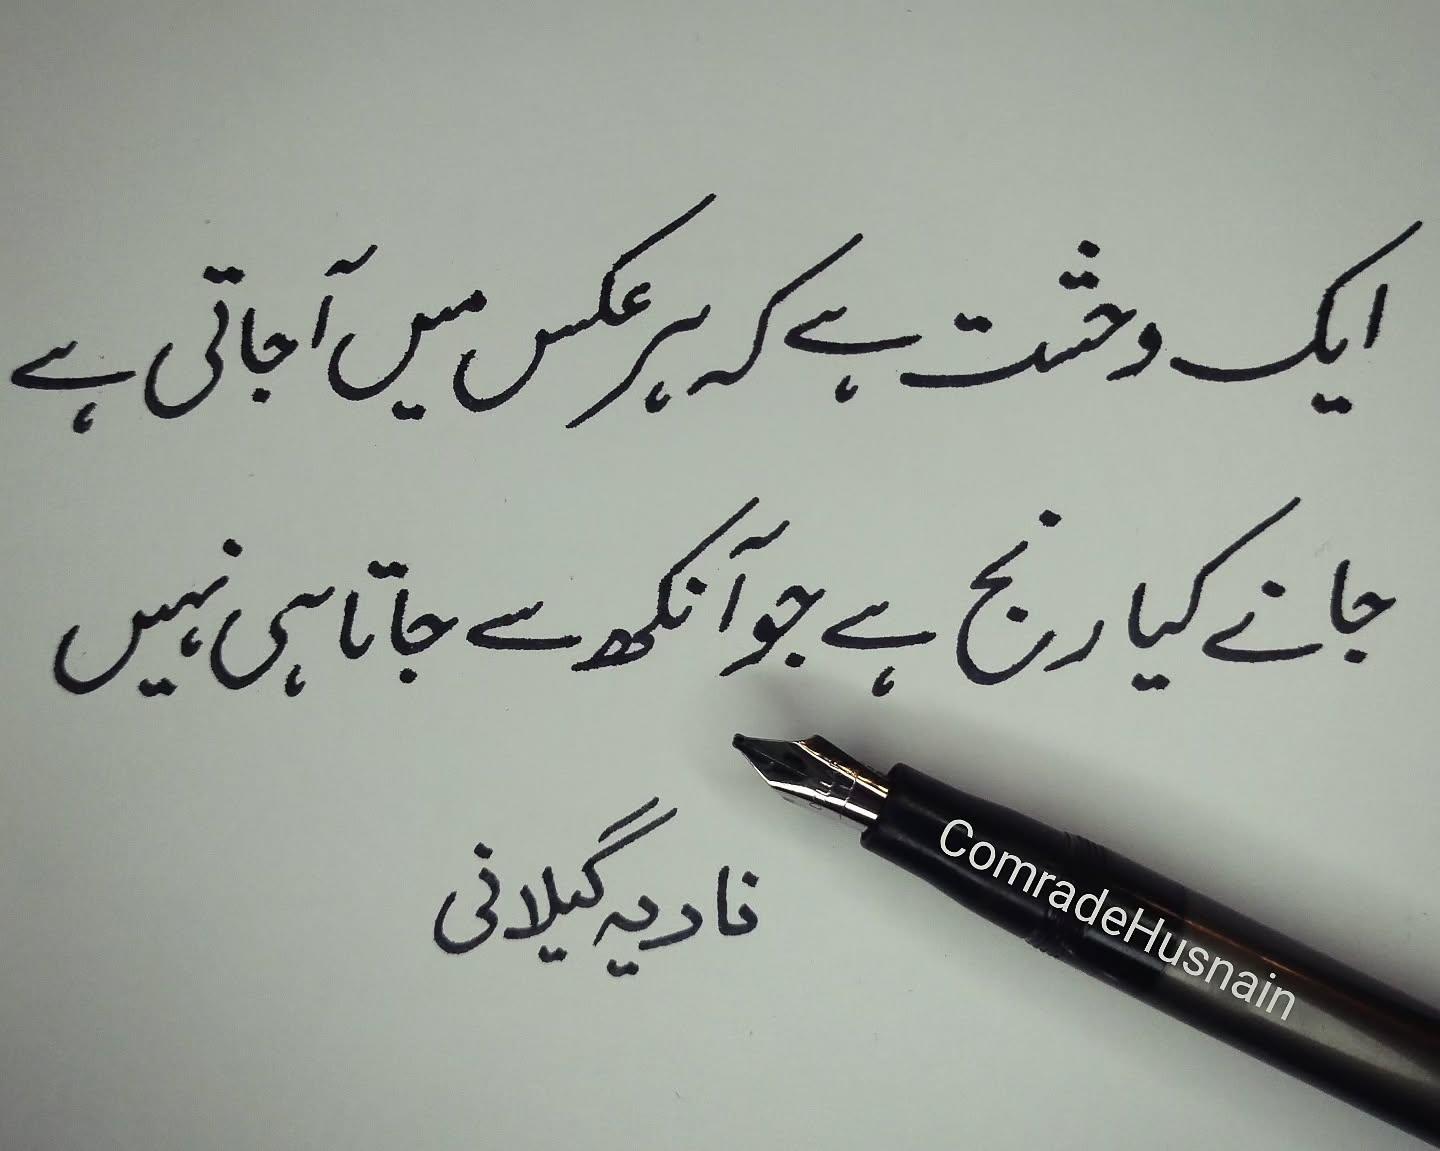 ایک وحشت ہے کہ ہر عکس میں آ جاتی ہے
جانے کیا رنج ہے جو آنکھ سے جاتا ہی نہیں
نادیہ گیلانی
ComradeHusnain